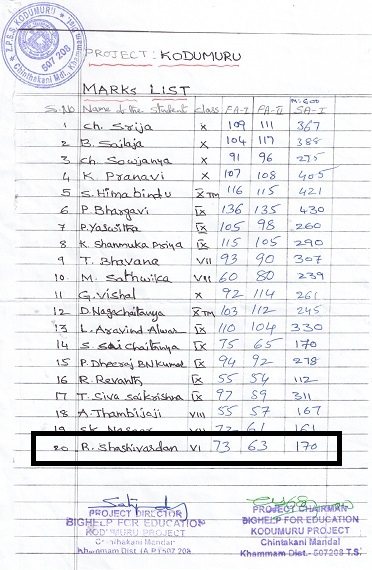 Z.P.S.S. KODUMURU
Chinthakani Mdl.
507 208
PROJECT: KODUMURU
MARKS LIST
S.No Name of the student Class FA-I FA-II M:600 SA-I
1 Ch. Srija X 109 111 367
2 B. Sailaja X 104 117 388
3 Ch. Sowjanya X 91 96 275
4 K. Pranavi X 107 108 405
5 S. Himabindu X TM 116 115 421
6 P. Bhargavi IX 136 135 430
7 P. Yaswitha IX 105 98 260
8 K. Shanmuka Priya IX 115 105 290
9 T. Bhavana VII 93 90 307
10 M. Sathwika VII 60 80 239
11 G. Vishal X 92 114 261
12 D. Nagachaitanya X TM 103 112 245
13 L. Aravind Alwar IX 110 104 330
14 S. Sai Chaitanya IX 75 65 170
15 P. Dheeraj BN Kumar IX 94 92 278
16 R. Revanth IX 55 54 112
17 T. Siva Saikrishna IX 97 59 311
18 A. Thambijaji VIII 55 57 167
19 SK. VII 61 161
20 R. Shashivardan VI 73 63 170
PROJECT DIRECTOR
BIGHELP FOR EDUCATION
KODUMURU PROJECT
Chintakani Mandal
Khammam Dist (A.P) 507 208
PROJECT CHAIRMAN
BIGHELP FOR EDUCATION
KODUMURU PROJECT
Chintakani Mandal
Khammam Dist.- 507208 T.S.